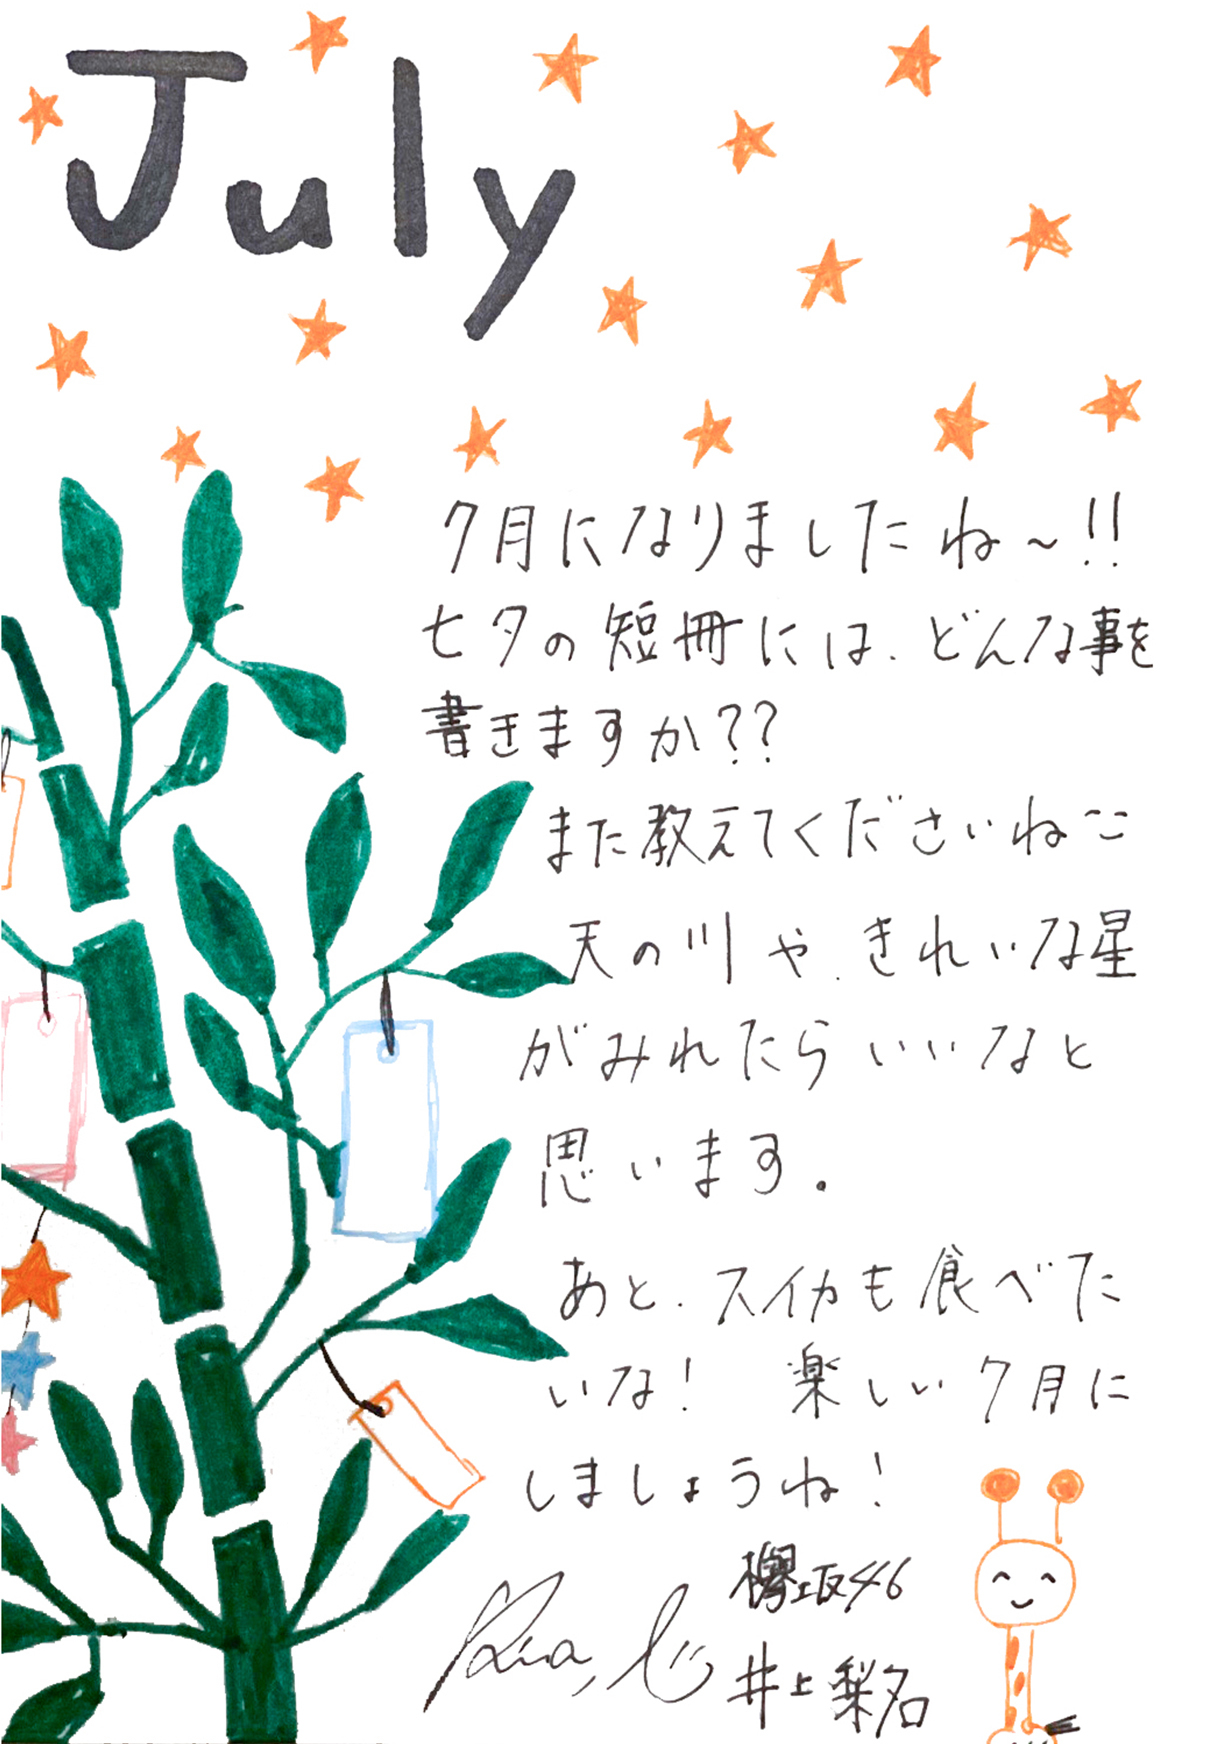 July
7月になりましたね〜!!
七夕の短冊には、どんな事を
書きますか??
また教えてくださいね
天の川や、きれいな星
がみれたらいいなと
思います。
あと、スイカも食べた
いな! 楽しい7月に
しましょうね!
欅坂46
Rina, I
井上梨名